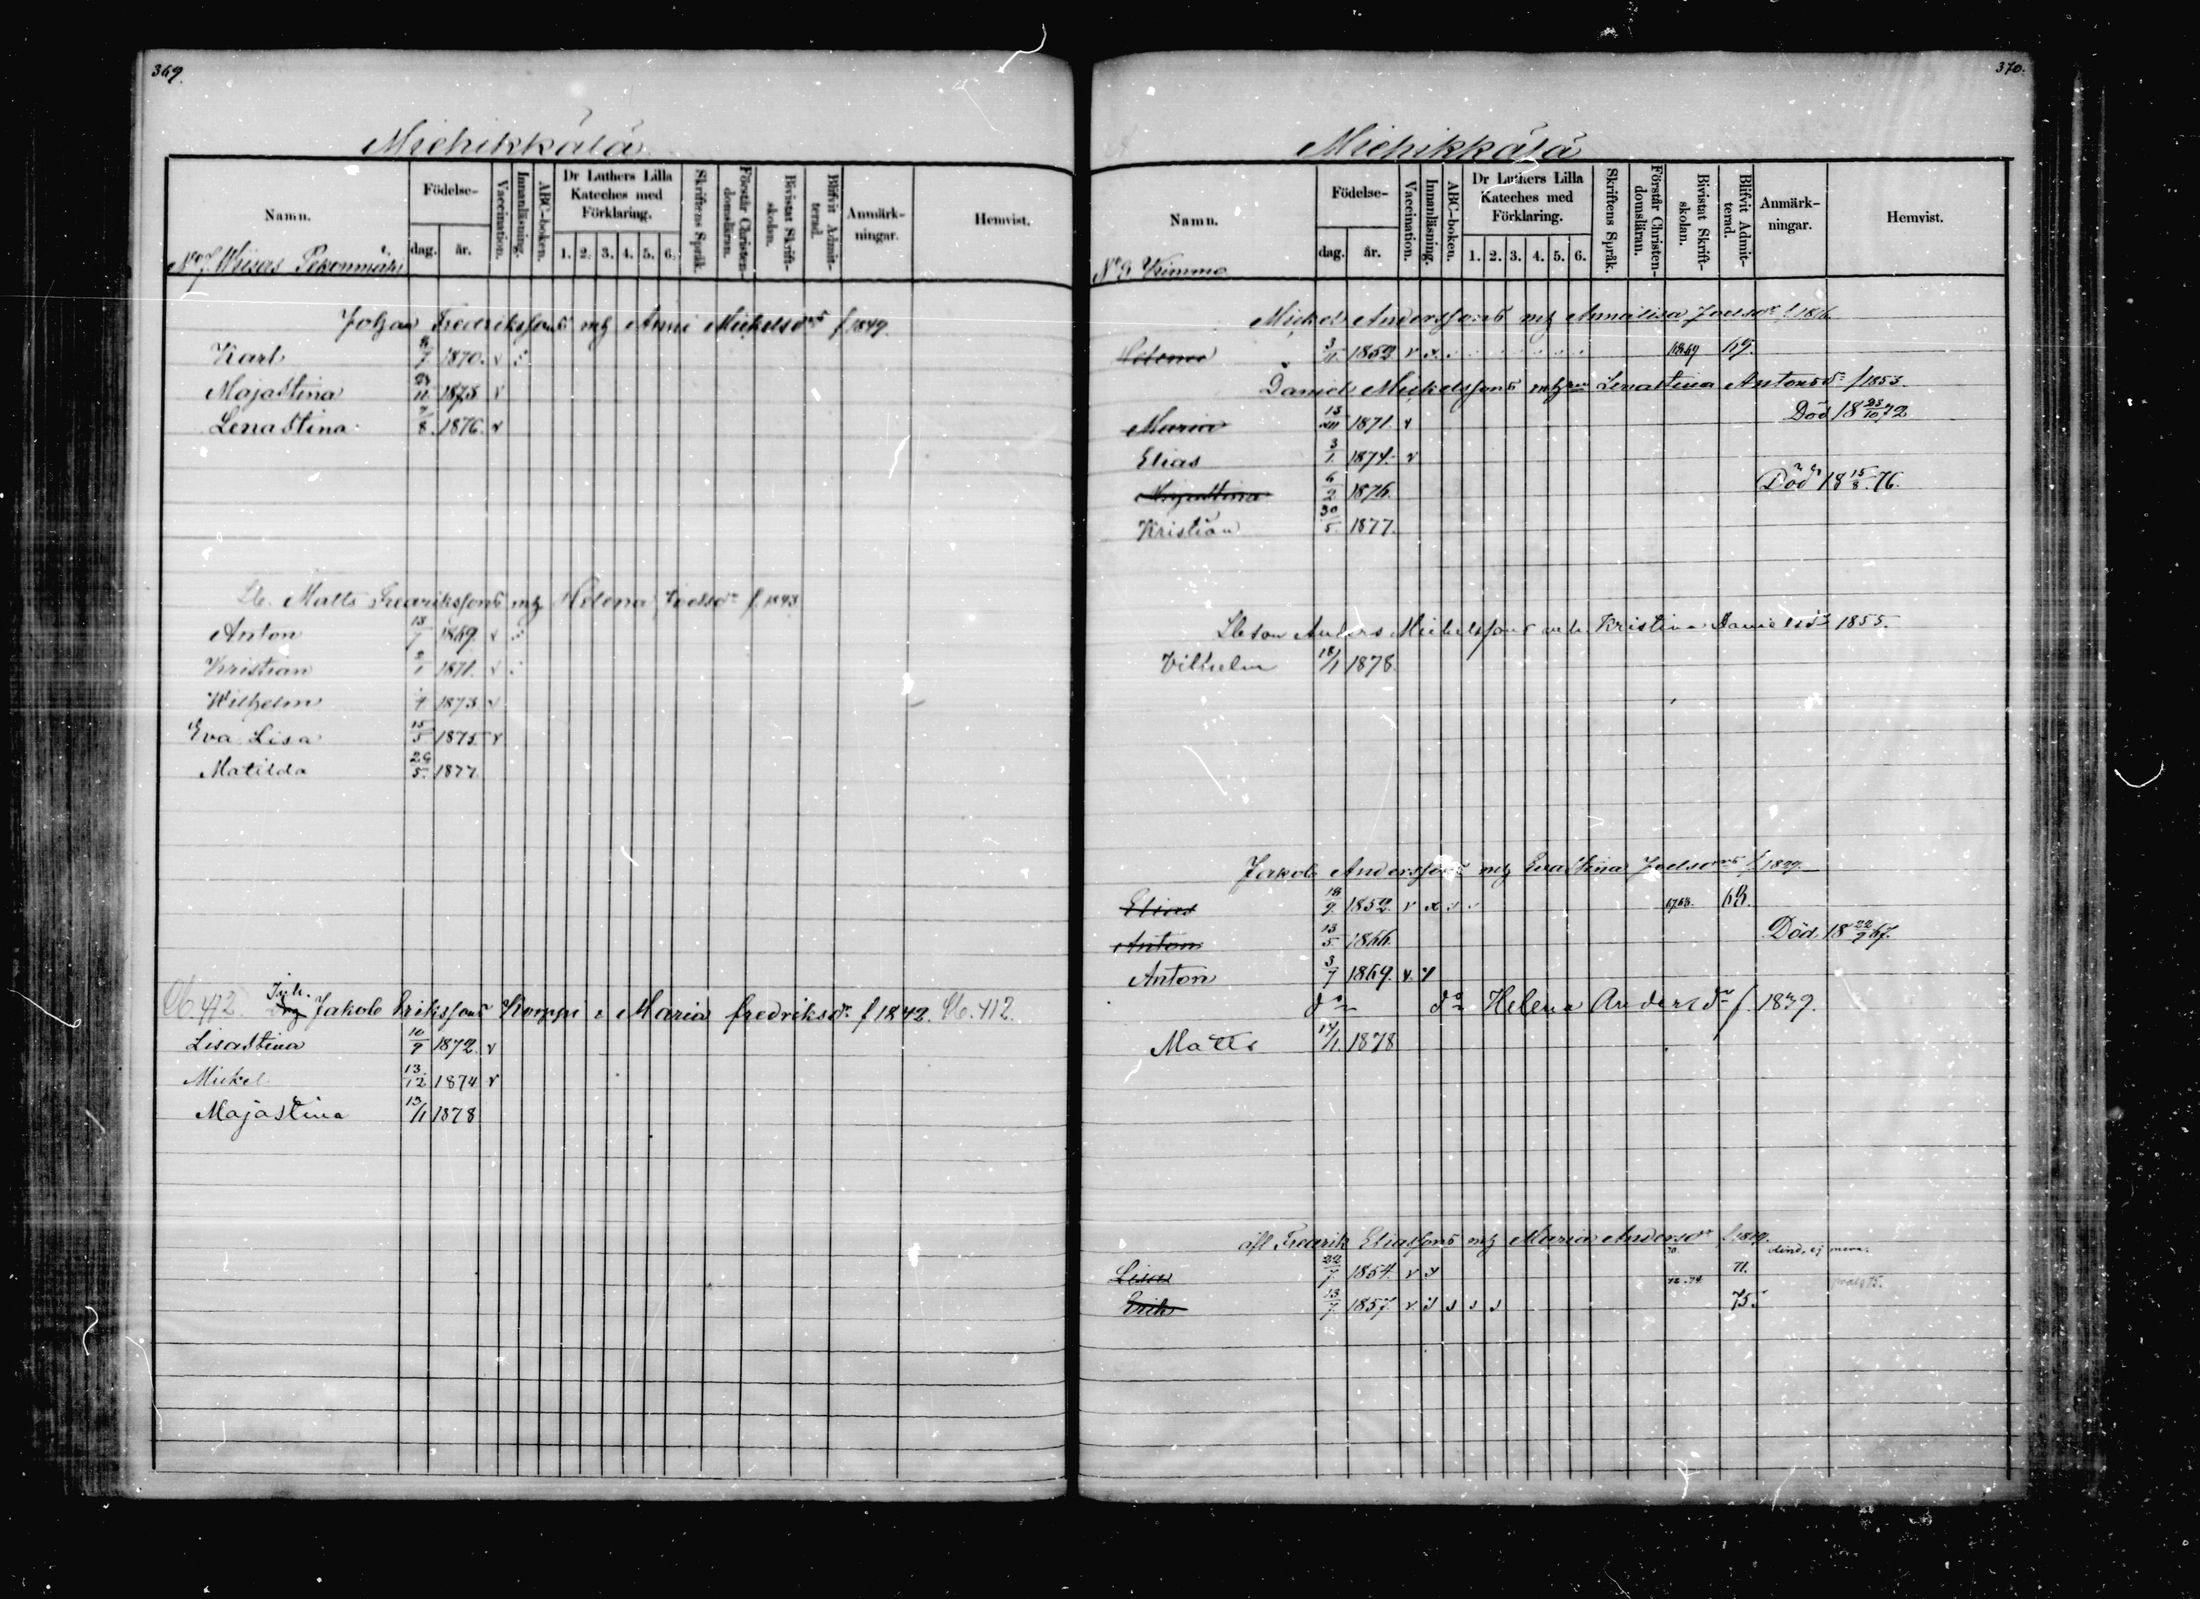 369.
Michikkälä
Namn. Födelse- dag. år. Vaccination. Innanläsning. ABC-boken. Dr Luthers Lilla Kateches med Förklaring. 1. 2. 3. 4. 5. 6. Skriftens Språk. Förstår Christendomsläran. Bivistat Skriftskolan. Blifvit Admitterad. Anmärkningar. Hemvist.
No 7.
Johan Fredriksson mh Anni Mickelsdr f 1849.
Karl 8/7 1870. v
Majastina 1873 v
Lenastina 7/8. 1876. v
Matts Fredriksson mh Helena Joelsdr f. 1843
Anton 13/7 1869 v
Kristian 2/1 1871. v
Wilhelm 1873 v
Eva Lisa 15/5 1875 v
Matilda 26/5. 1877
412. Inh. Jakob Eriksson Koppi & Maria fredriksdr f 1842. 412.
Lisastina 10/9 1872. v
Mickel 13/12 1874 v
Majastina 13/1 1878
370.
Michikkälä
Namn. Födelse- dag. år. Vaccination. Innanläsning. ABC-boken. Dr Luthers Lilla Kateches med Förklaring. 1. 2. 3. 4. 5. 6. Skriftens Språk. Förstår Christendomsläran. Bivistat Skriftskolan. Blifvit Admitterad. Anmärkningar. Hemvist.
No 9. Kimmo
Mickel Andersson mh Annalisa Joelsdr f 1816
Helena 3/11. 1852 v x 69.
Daniel Mickelsson mh Lenastina Antonsdr f 1853.
Maria 1871. v Död 18 23/10 72
Elias 3/1 1874. v
6/2 1876. Död 18 15/8. 76.
Kristian 30/5. 1877.
Anders Mickelsson mh. Kristina Danielsdr 1855.
Vilhelm 18/1 1878.
Jakob Andersson mh Evastina Joelsdr f 1822.
Elias 18/9. 1852. v x 67.68. 68.
Anton 13/5 1866. Död 18 22/9 67.
Anton 3/7 1869. v.
do do Helena Andersdr f. 1839.
Matts 17/1. 1878
Fredrik Eliasson mh Maria Andersdr f 1819.
Lisa 22/7 1854. v 71.
Erik 13/7 1857. v 75.